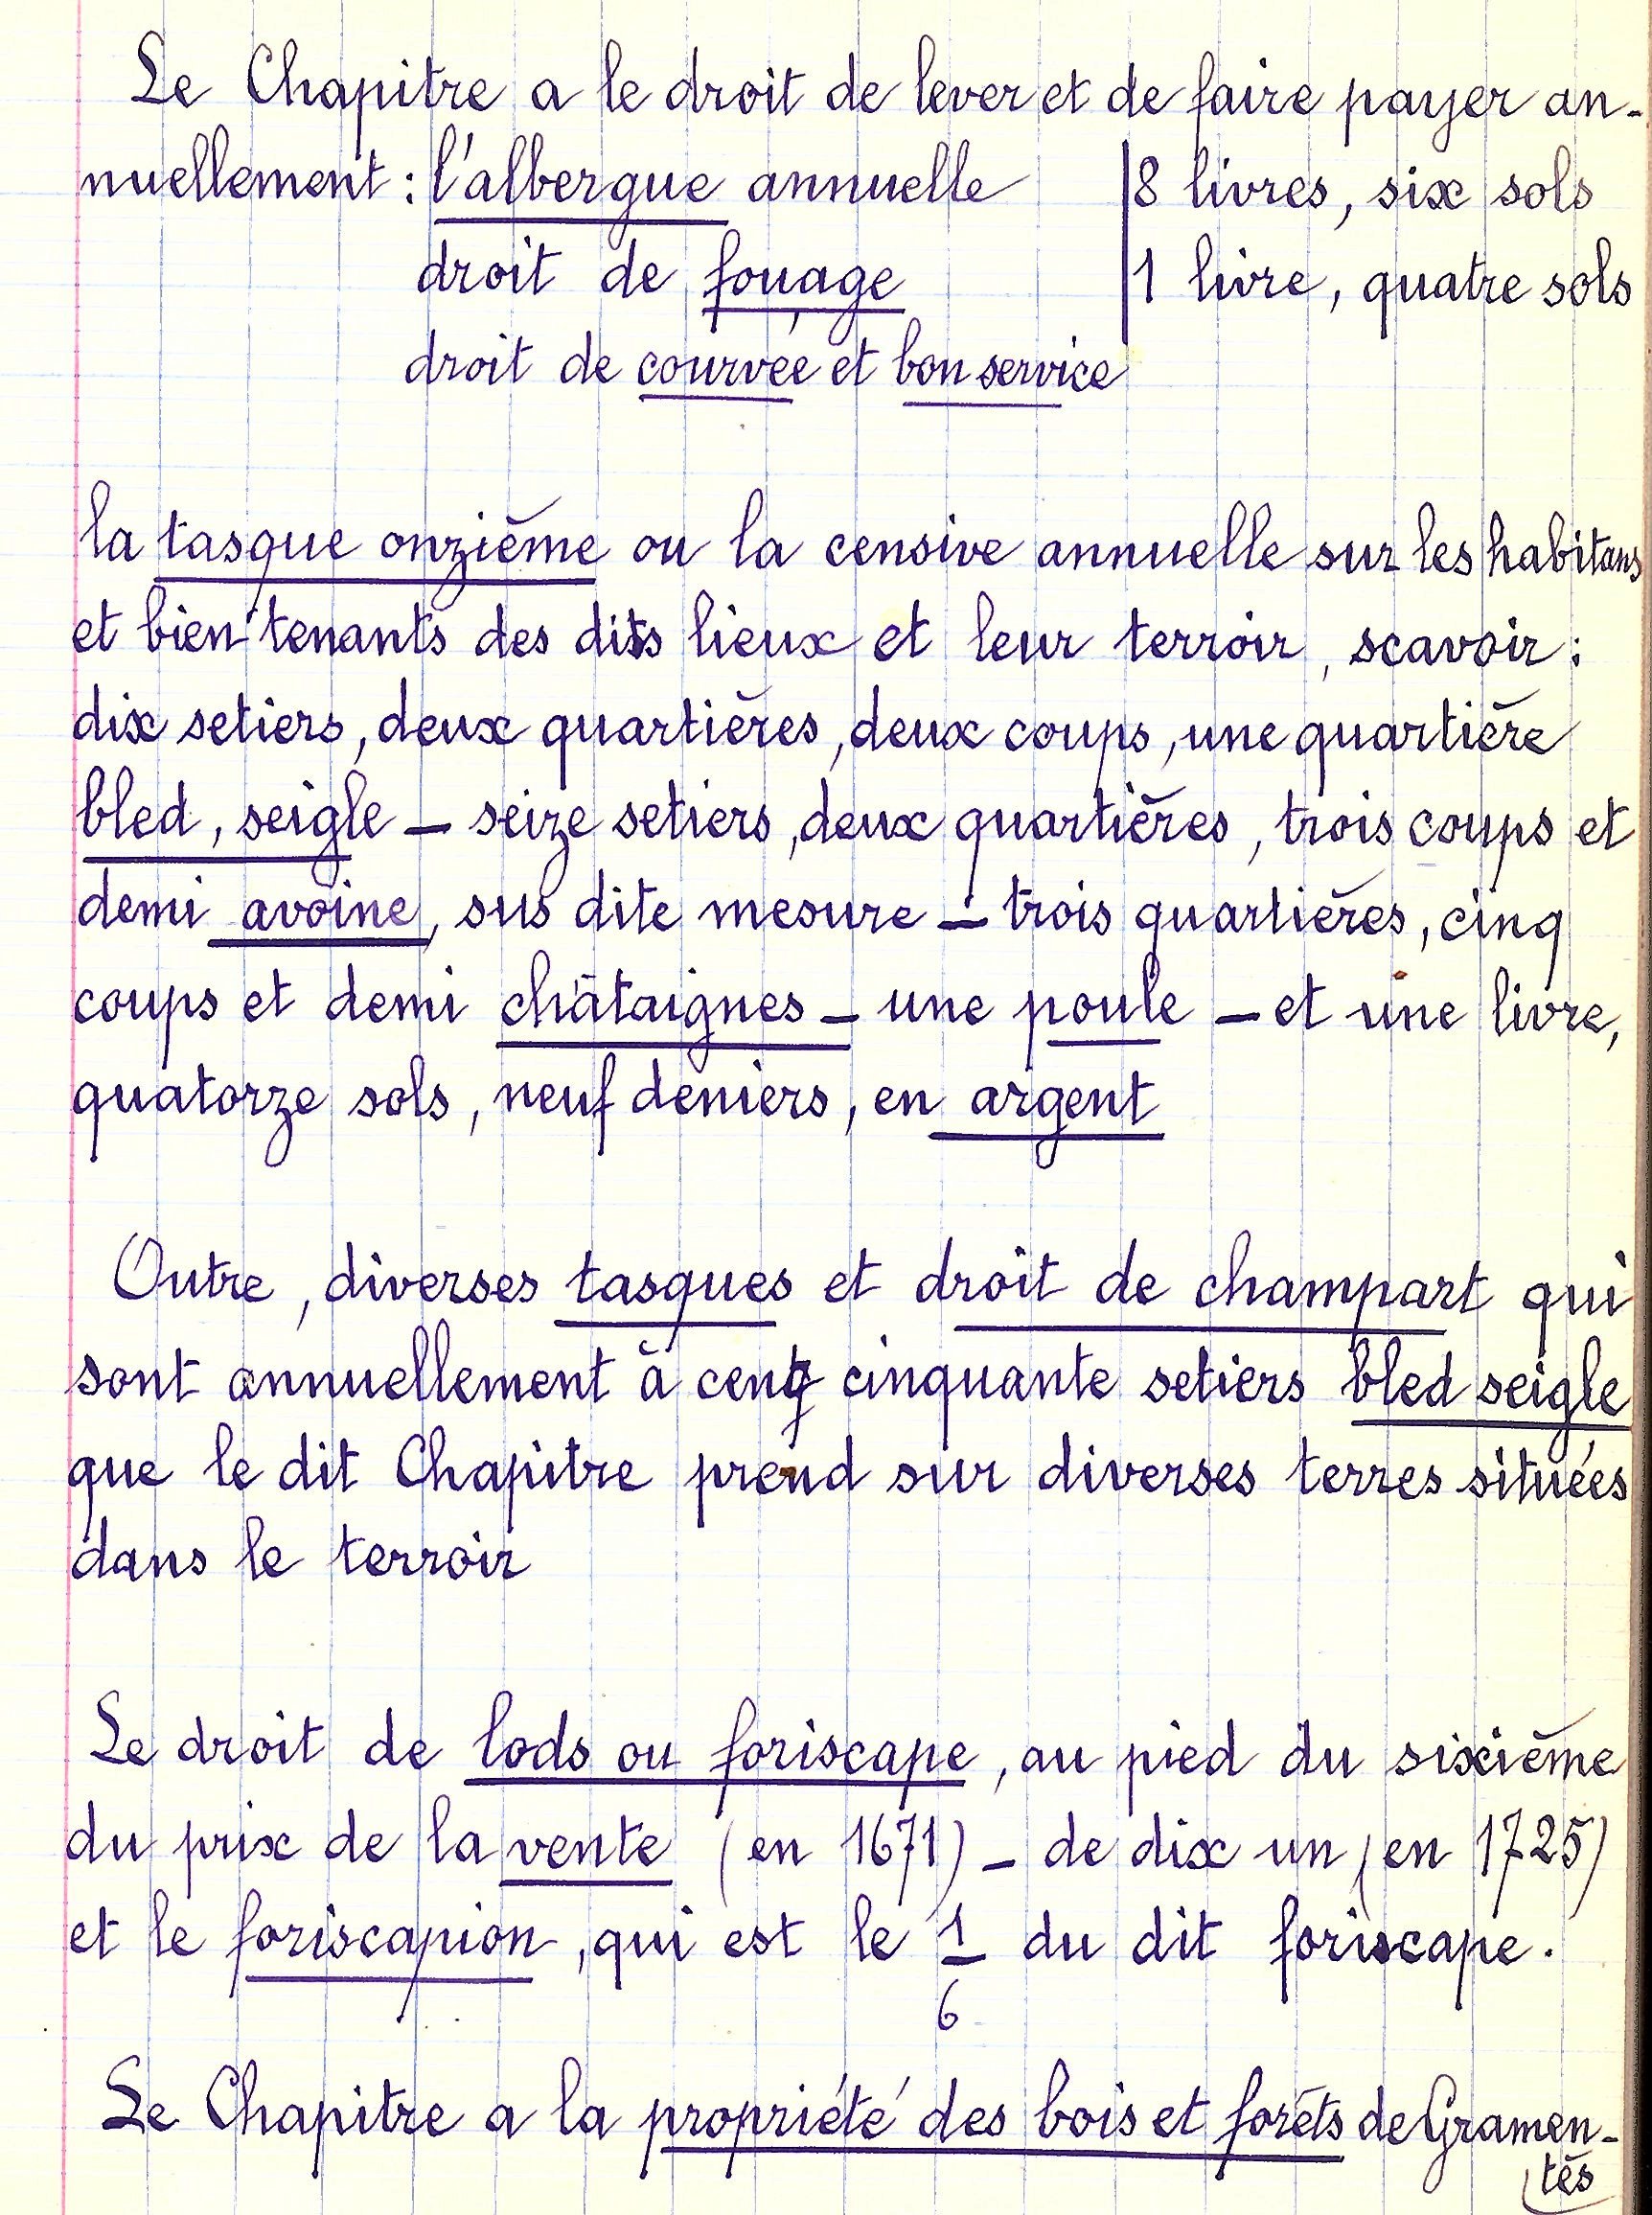 Le Chapitre a le droit de lever et de faire payer an-
nuellement : l'albergue annuelle | 8 livres, six sols
droit de fouage | 1 livre, quatre sols
droit de courvée et bon service
la tasque onzième ou la censive annuelle sur les habitans
et bien tenants des dits lieux et leur terroir, scavoir :
dix setiers, deux quartières, deux coups, une quartière
bled, seigle — seize setiers, deux quartières, trois coups et
demi avoine, sus dite mesure — trois quartières, cinq
coups et demi châtaignes — une poule — et une livre,
quatorze sols, neuf deniers, en argent
Outre, diverses tasques et droit de champart qui
sont annuellement à cent cinquante setiers bled seigle
que le dit Chapitre prend sur diverses terres situées
dans le terroir
Le droit de lods ou foriscape, au pied du sixième
du prix de la vente (en 1671) — de dix un (en 1725)
et le foriscapion, qui est le 1/6 du dit foriscape.
Le Chapitre a la propriété des bois et forêts de Gramen-
tès